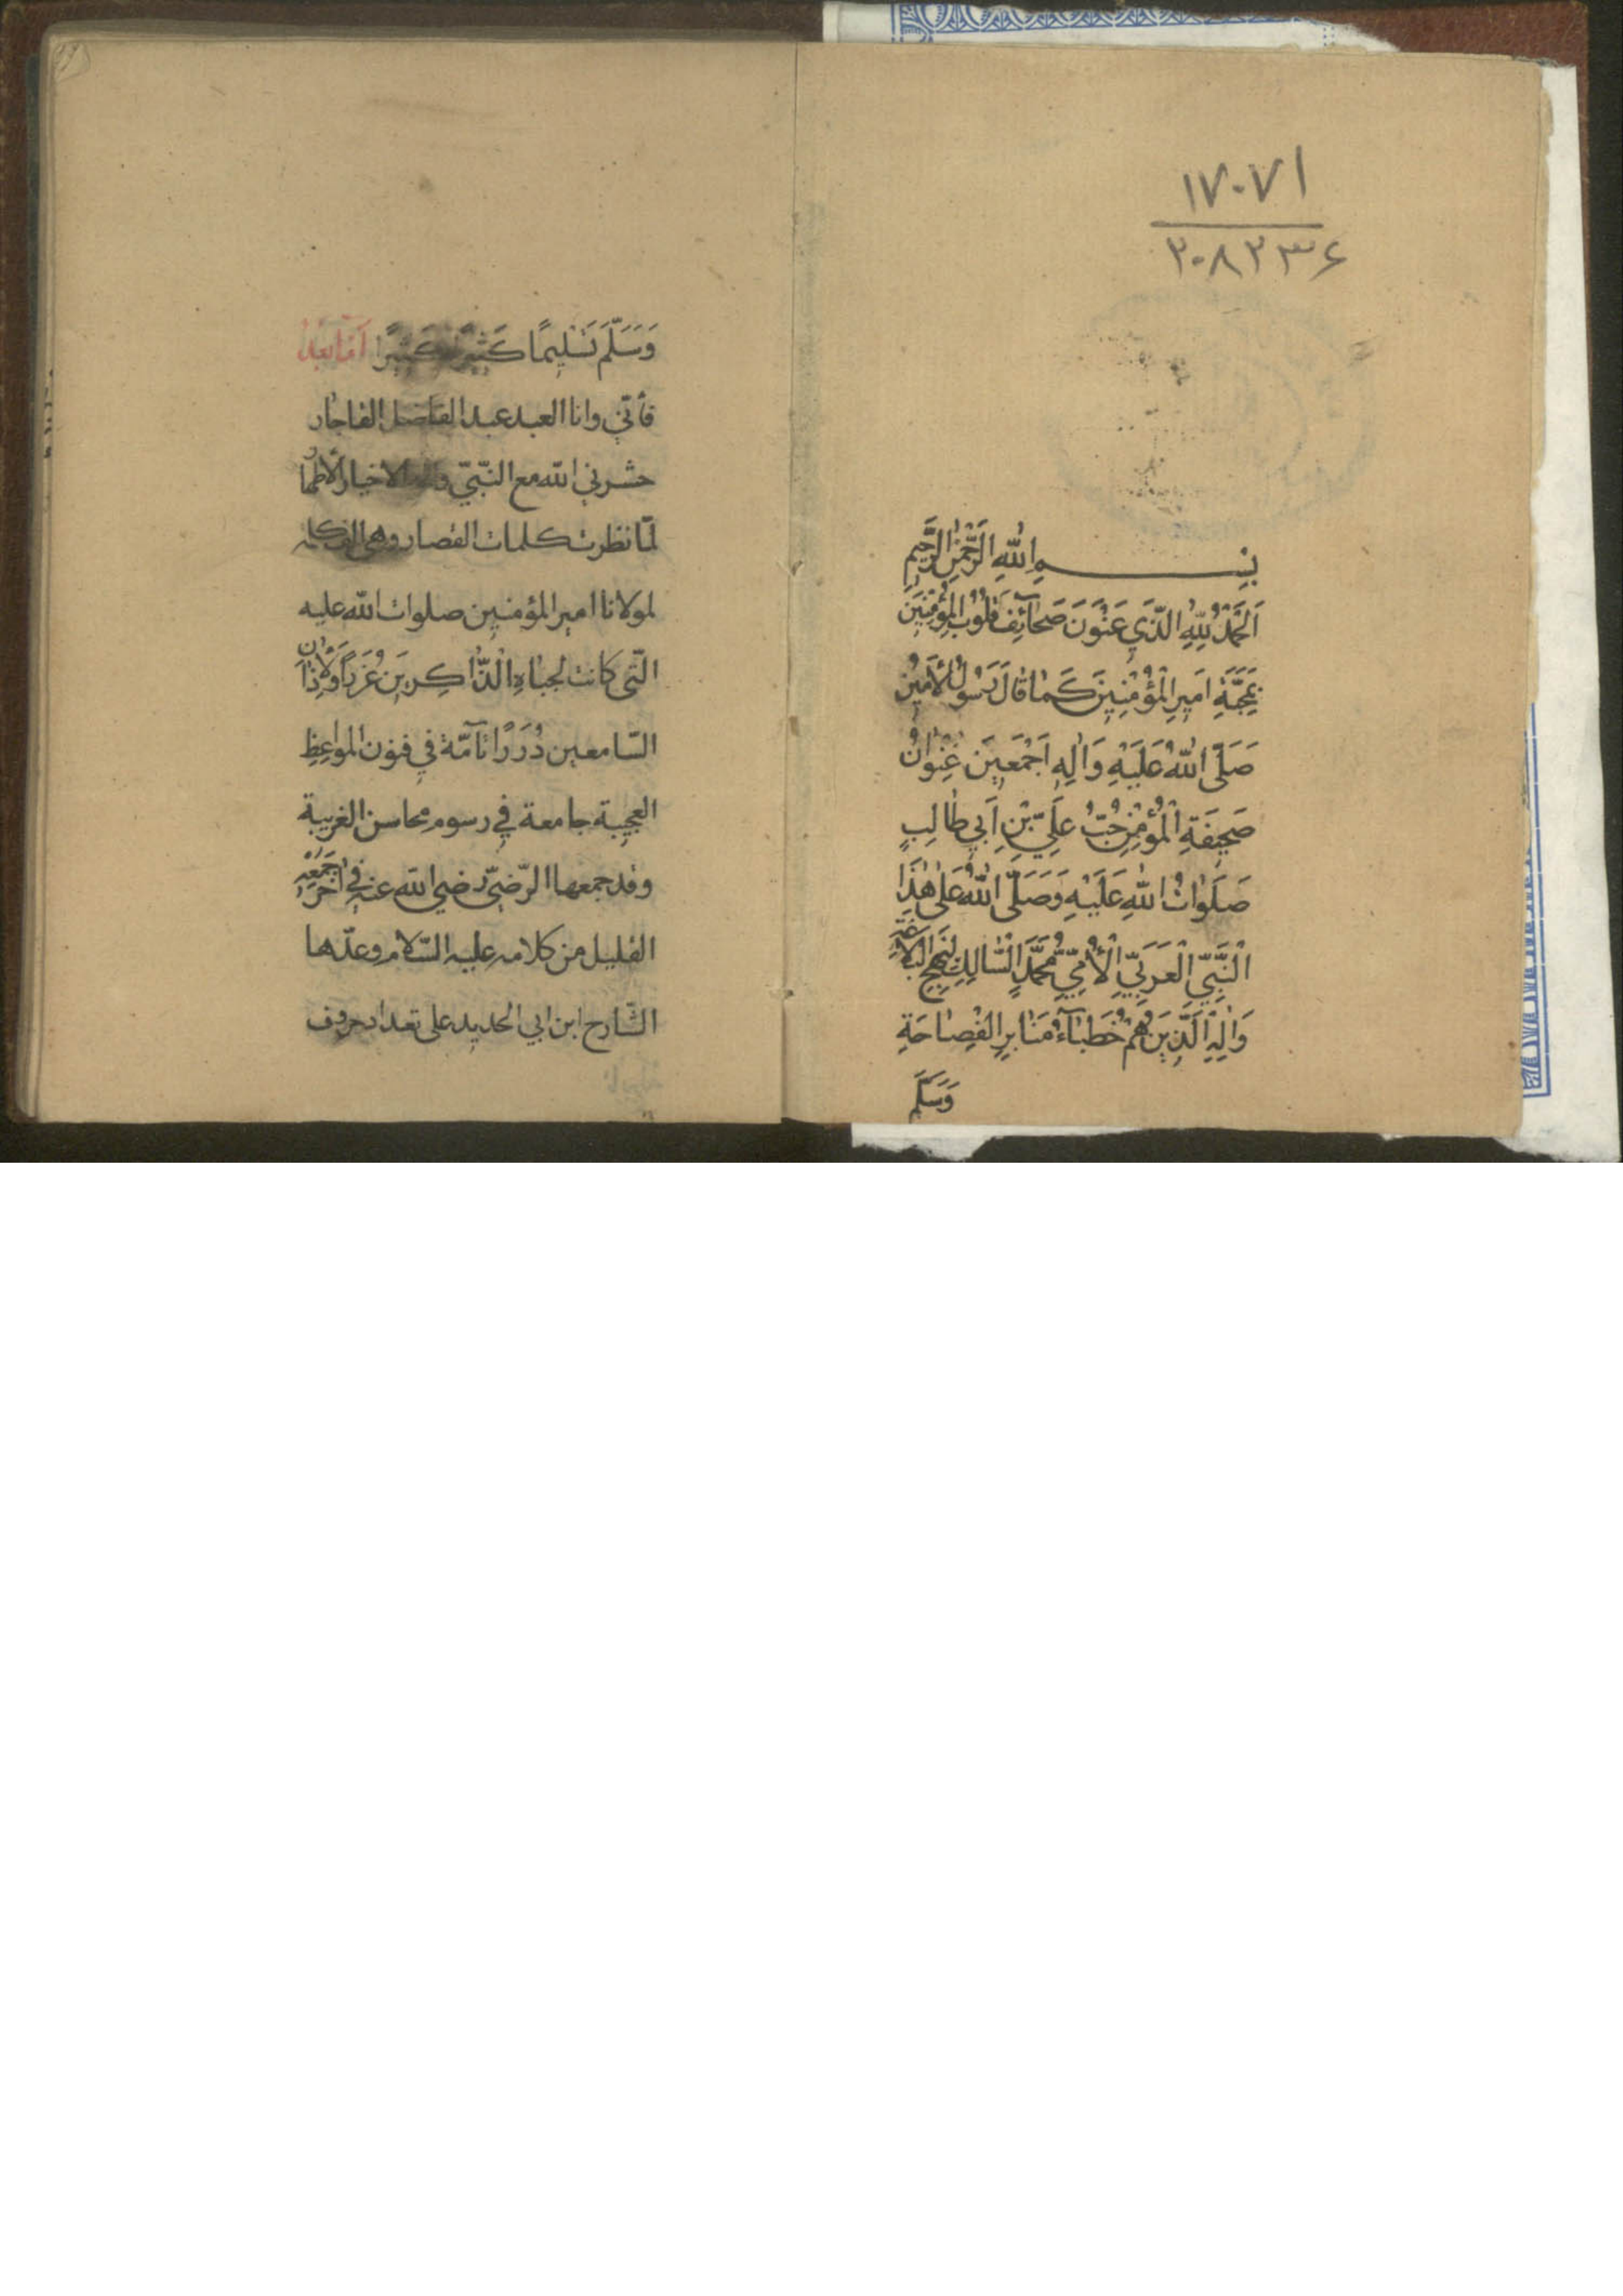 ۱۷۰۷۱
۲۰۸۲۳۶
بِسْمِ اللهِ الرَّحْمٰنِ الرَّحِيمِ
اَلْحَمْدُ لِلّٰهِ الَّذِي عَنْوَنَ صَحَائِفَ قُلُوبِ الْمُؤْمِنِينَ
بِمَحَبَّةِ اَمِيرِ الْمُؤْمِنِينَ كَمٰا قٰالَ رَسُولُ الْأَمِينُ
صَلَّى اللهُ عَلَيْهِ وَاٰلِهِ اَجْمَعِينَ عُِنْوٰانُ
صَحِيفَةِ الْمُؤْمِنِ حُبُّ عَلِيِّ بْنِ اَبِي طٰالِبٍ
صَلَوٰاتُ اللهِ عَلَيْهِ وَصَلَّى اللهُ عَلىٰ هٰذَا
النَّبِيِّ الْعَرَبِيِّ الْأُمِّيِّ مُحَمَّدٍ السّٰالِكِ لِنَهْجِ الْبَلاٰغَةِ
وَاٰلِهِ الَّذِينَ هُمْ خُطَبٰآءُ مَنٰابِرِ الْفِصٰاحَةِ
وَسَلَّمَ
وَسَلَّمَ تَسْلِيمًا كَثِيرًا كَثِيرًا اَمّٰا بَعْدُ
فأنّي وانا العبد عبد الفاضل القاجار
حشرني الله مع النّبيّ وآله الاخيار الأطهار
لمّا نظرت كلمات القصار وهي الف كلمه
لمولانا امير المؤمنين صلوات الله عليه
الّتى كانت لجباهِ الذّٰاكِرِينَ غُرَراً وَلِاٰذٰانِ
السّامعين دُرَرًا تآمّة في فنون المواعِظِ
العجيبة جامعة في رسوم محاسن الغريبة
وقد جمعها الرّضيّ رضي الله عنه في اٰخر جَمْعِهِ
القليل من كلامه عليه السّلام وعدّها
الشّارح ابن ابي الحديد على تعداد حروف